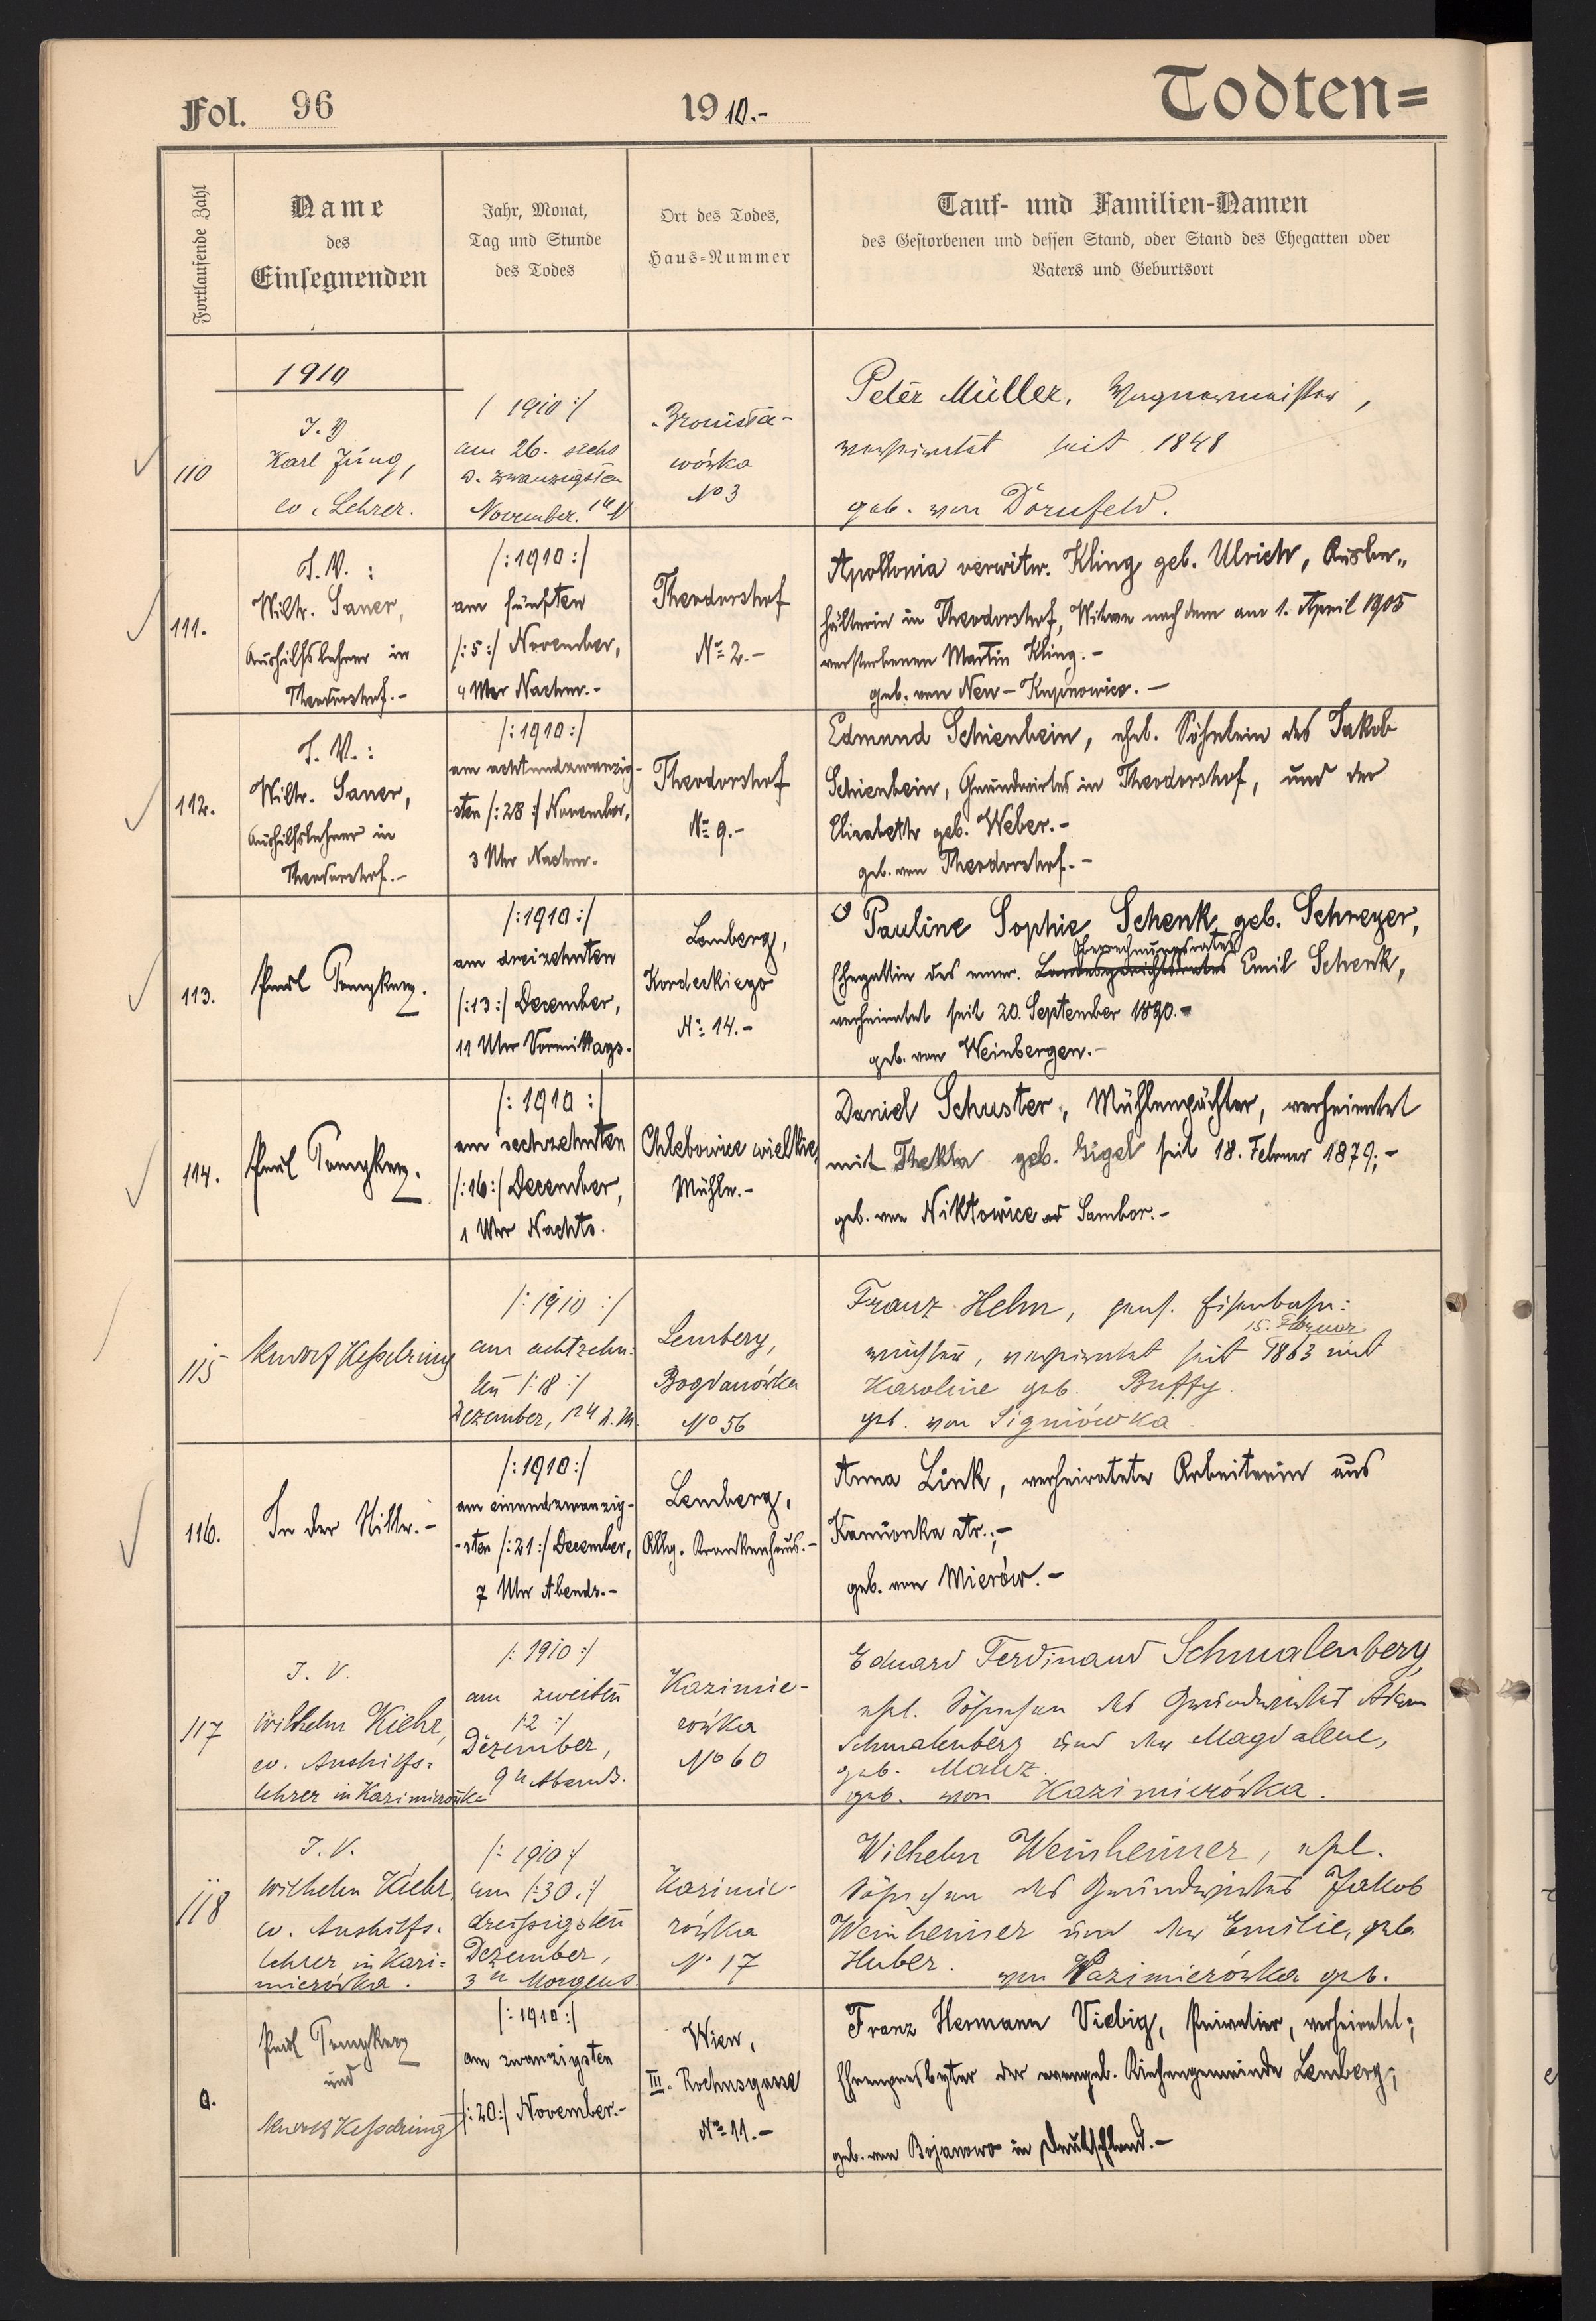 Fol. 96
1910.-
Todten=
Fortlaufende Zahl
Name
des
Einsegnenden
Jahr, Monat,
Tag und Stunde
des Todes
Ort des Todes,
Haus-Nummer
Tauf- und Familien-Namen
des Gestorbenen und dessen Stand, oder Stand des Ehegatten oder
Vaters und Geburtsort
1910
110
J. V
Karl Jung,
ev. Lehrer.
/ 1910 :/
am 26. sechs
u. zwanzigsten
November.
Bronisła-
wówka
No 3
Peter Müller, Wagnermeister,
verheiratet seit 1848
geb. von Dornfeld.
111.
J. V. :
Wilh. Saner,
Aushilfslehrer in
Theodorshof.-
/:1910:/
am fünften
/:5:/ November,
4 Uhr Nachm.-
Theodorshof
No 2.-
Apollonia verwitw. Kling geb. Ulrich, Ausbe-
hälterin in Theodorshof, Witwe nach dem am 1. April 1905
verstorbenen Martin Kling.-
geb. von Neu-Kupnowice.-
112.
J. V. :
Wilh. Saner,
Aushilfslehrer in
Theodorshof.-
/:1910:/
am achtundzwanzig-
sten /:28:/ November,
3 Uhr Nachm.
Theodorshof
No 9.-
Edmund Schienbein, ehel. Söhnlein des Jakob
Schienbein, Grundwirtes in Theodorshof, und der
Elisabeth geb. Weber.-
geb. von Theodorshof.-
113.
/:1910:/
am dreizehnten
/:13:/ December,
11 Uhr Vormittags.
Lemberg,
Kordeckiego
No 14.-
Pauline Sophie Schenk geb. Schreyer,
Oberrechnungsrates
Ehegattin des emer. Landesgerichtsrates Emil Schenk,
verheiratet seit 20. September 1890.-
geb. von Weinbergen.-
114.
/:1910:/
am sechzehnten
/:16:/ December,
1 Uhr Nachts.
Chlebowice wielkie,
Mühle.-
Daniel Schuster, Mühlenpächter, verheiratet
mit Thekla geb. Eigel seit 18. Februar 1879;-
geb. von Nikłowice ad Sambor.-
115
Kesselring
/: 1910 :/
am achtzehn-
ten /:18:/
Dezember, 12 u
Lemberg,
Bogdanówka
No 56
Franz Helm, pens. Eisenbahn:
15. Februar
wächter, verheiratet seit 1863 mit
Karoline geb. Buffy.
geb. von Signiówka.
116.
In der Stille.-
/:1910:/
am einundzwanzig-
-sten /:21:/ December,
7 Uhr Abends.-
Lemberg,
Allg. Krankenhaus.-
Anna Link, verheiratete Arbeiterin aus
Kamionka str.;-
geb. von Mierów.-
117
J. V.
Wilhelm Kiehr,
ev. Aushilfs-
lehrer in Kazimierówka
/: 1910 :/
am zweiten
/:2 :/
Dezember,
9 u Abends.
Kazimie-
rówka
No 60
Eduard Ferdinand Schmalenberg,
ehel. Söhnchen des Grundwirtes Adam
Schmalenberg und der Magdalene,
geb. Manz.
geb. von Kazimierówka.
118
J. V.
Wilhelm Kiehr,
ev. Aushilfs-
lehrer in Kazi-
mierówka.
/: 1910 :/
am /:30.:/
dreissigsten
Dezember,
3 u Morgens.
Kazimie-
rówka
No 17
Wilhelm Weinheimer, ehel.
Söhnchen des Grundwirtes Jakob
Weinheimer und der Emilie, geb.
Huber. von Kazimierówka geb.
a.
und
Kesselring
/:1910:/
am zwanzigsten
/:20:/ November.-
Wien,
III. Rochusgasse
No 11.-
Franz Hermann Viebig, Privatier, verheiratet;
Ehrenpresbyter der evangel. Kirchengemeinde Lemberg;
geb. von Bojanowo in Deutschland.-